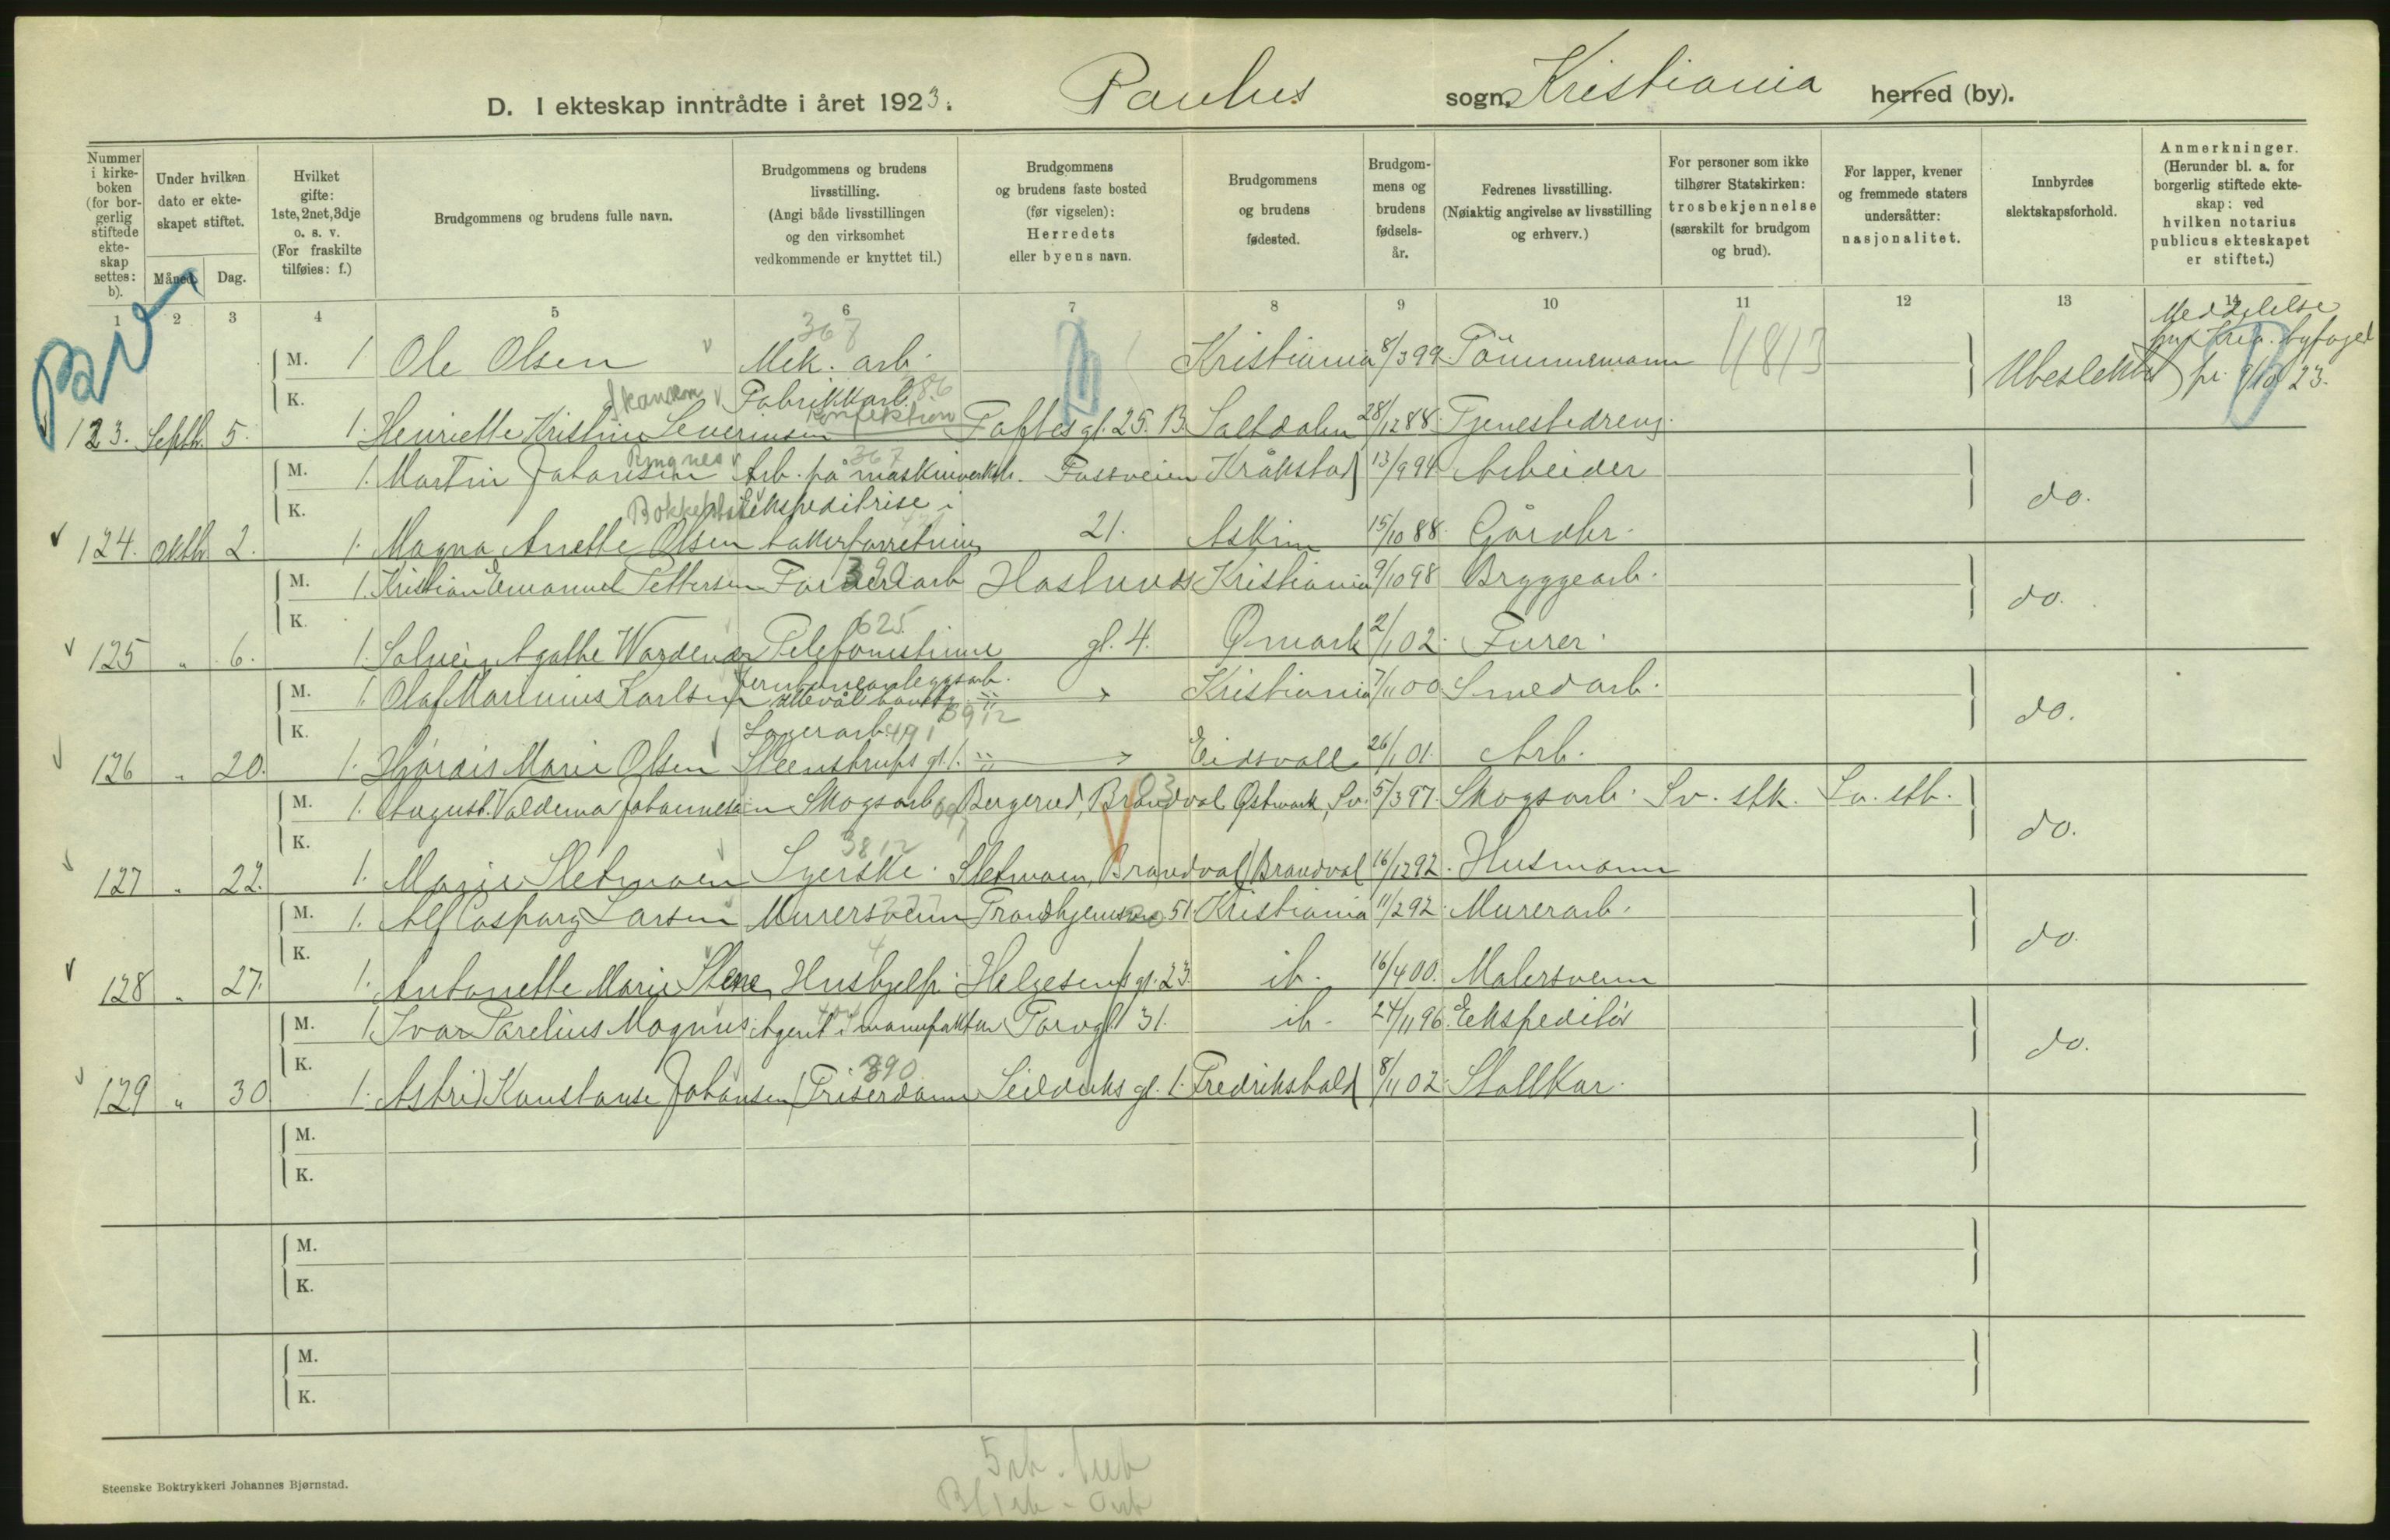 D. I ekteskap inntrådte i året 1923. Paulus sogn, Kristiania herred (by).
Nummer i kirkeboken (for borgerlig stiftede ekteskap settes: b).
Under hvilken dato er ekteskapet stiftet.
Måned. Dag.
Hvilket gifte: 1ste, 2net, 3dje o. s. v. (For fraskilte tilføies: f.)
Brudgommens og brudens fulle navn.
Brudgommens og brudens livsstilling. (Angi både livsstillingen og den virksomhet vedkommende er knyttet til.)
Brudgommens og brudens faste bosted (før vigselen): Herredets eller byens navn.
Brudgommens og brudens fødested.
Brudgommens og brudens fødselsår.
Fedrenes livsstilling. (Nøiaktig angivelse av livsstilling og erhverv.)
For personer som ikke tilhører Statskirken: trosbekjennelse (særskilt for brudgom og brud).
For lapper, kvener og fremmede staters undersåtter: nasjonalitet.
Innbyrdes slektskapsforhold.
Anmerkninger. (Herunder bl. a. for borgerlig stiftede ekteskap: ved hvilken notarius publicus ekteskapet er stiftet.)
1 2 3 4 5 6 7 8 9 10 11 12 13 14
Meddelelse
367
M. 1 Ole Olsen Mek. arb. Kristiania 8/3 99 Tömmermann 4813 Ubeslektet
fra Kr.a. byfoged
K. Fabrikkarb. 86 pr. 9/10 23.
Konfektion
123. Septb. 5. 1. Henriette Kristine Severinsen Toftes gt. 25. B Saltdalen 28/12 88. Tjenestedreng.
Ringnes 367
M. 1. Martin Johansen Arb. på maskinverkst. Fossveien Kråkstad 13/9 94 Arbeider do.
K. Ekspeditrise i
124. Oktb. 2. 1. Magna Anette Olsen bakerforretning 21. Askim 15/10 88. Gårdbr.
M. 1. Kristian Emanuel Pettersen 390 Haslunds Kristiania 9/10 98 Bryggearb. do.
K. 625
125 " 6. 1. Solveig Agathe Wardenær Telefonistinne gt. 4. Ømark 2/1 02. Furer.
Jernbaneanleggsarb.
M. 1. Olaf Marinius Karlsen Kristiania 7/11 00 Smedarb. do.
K. Lagerarb. 491
126 " 20. 1. Hjördis Marie Olsen Steenstrups gt. 1. Eidsvoll 26/1 01. Arb.
M. 1. August Valdemar Johannessen Skogsarb. Bergerud, Brandval Østmark, Sv. 5/3 97. Skogsarb. Sv. stk. Sv. stb. do.
K. 3812
127 " 22. 1. Marie Sletmoen Syerske. Sletmoen, Brandval Brandval 16/12 92. Husmann
M. 1. Alf Casparg Larsen Murersvenn Trondhjemsvn 51 Kristiania 11/2 92. Murerarb. do.
K. 4
128 " 27. 1. Antonette Marie Stene Hushjelp. Helgesens gt. 23. ib. 16/4 00. Malersvenn
M. 1. Ivar Parelius Magnus Agent i manufaktur Torvgt 31. ib. 24/11 96. Ekspeditør do.
K. 390
129 " 30 1. Astrid Konstanse Johansen Friserdame Seilduks gt. 1. Fredrikshald 8/11 02. Stallkar.
M.
K.
M.
K.
M.
K.
Steenske Boktrykkeri Johannes Bjørnstad.